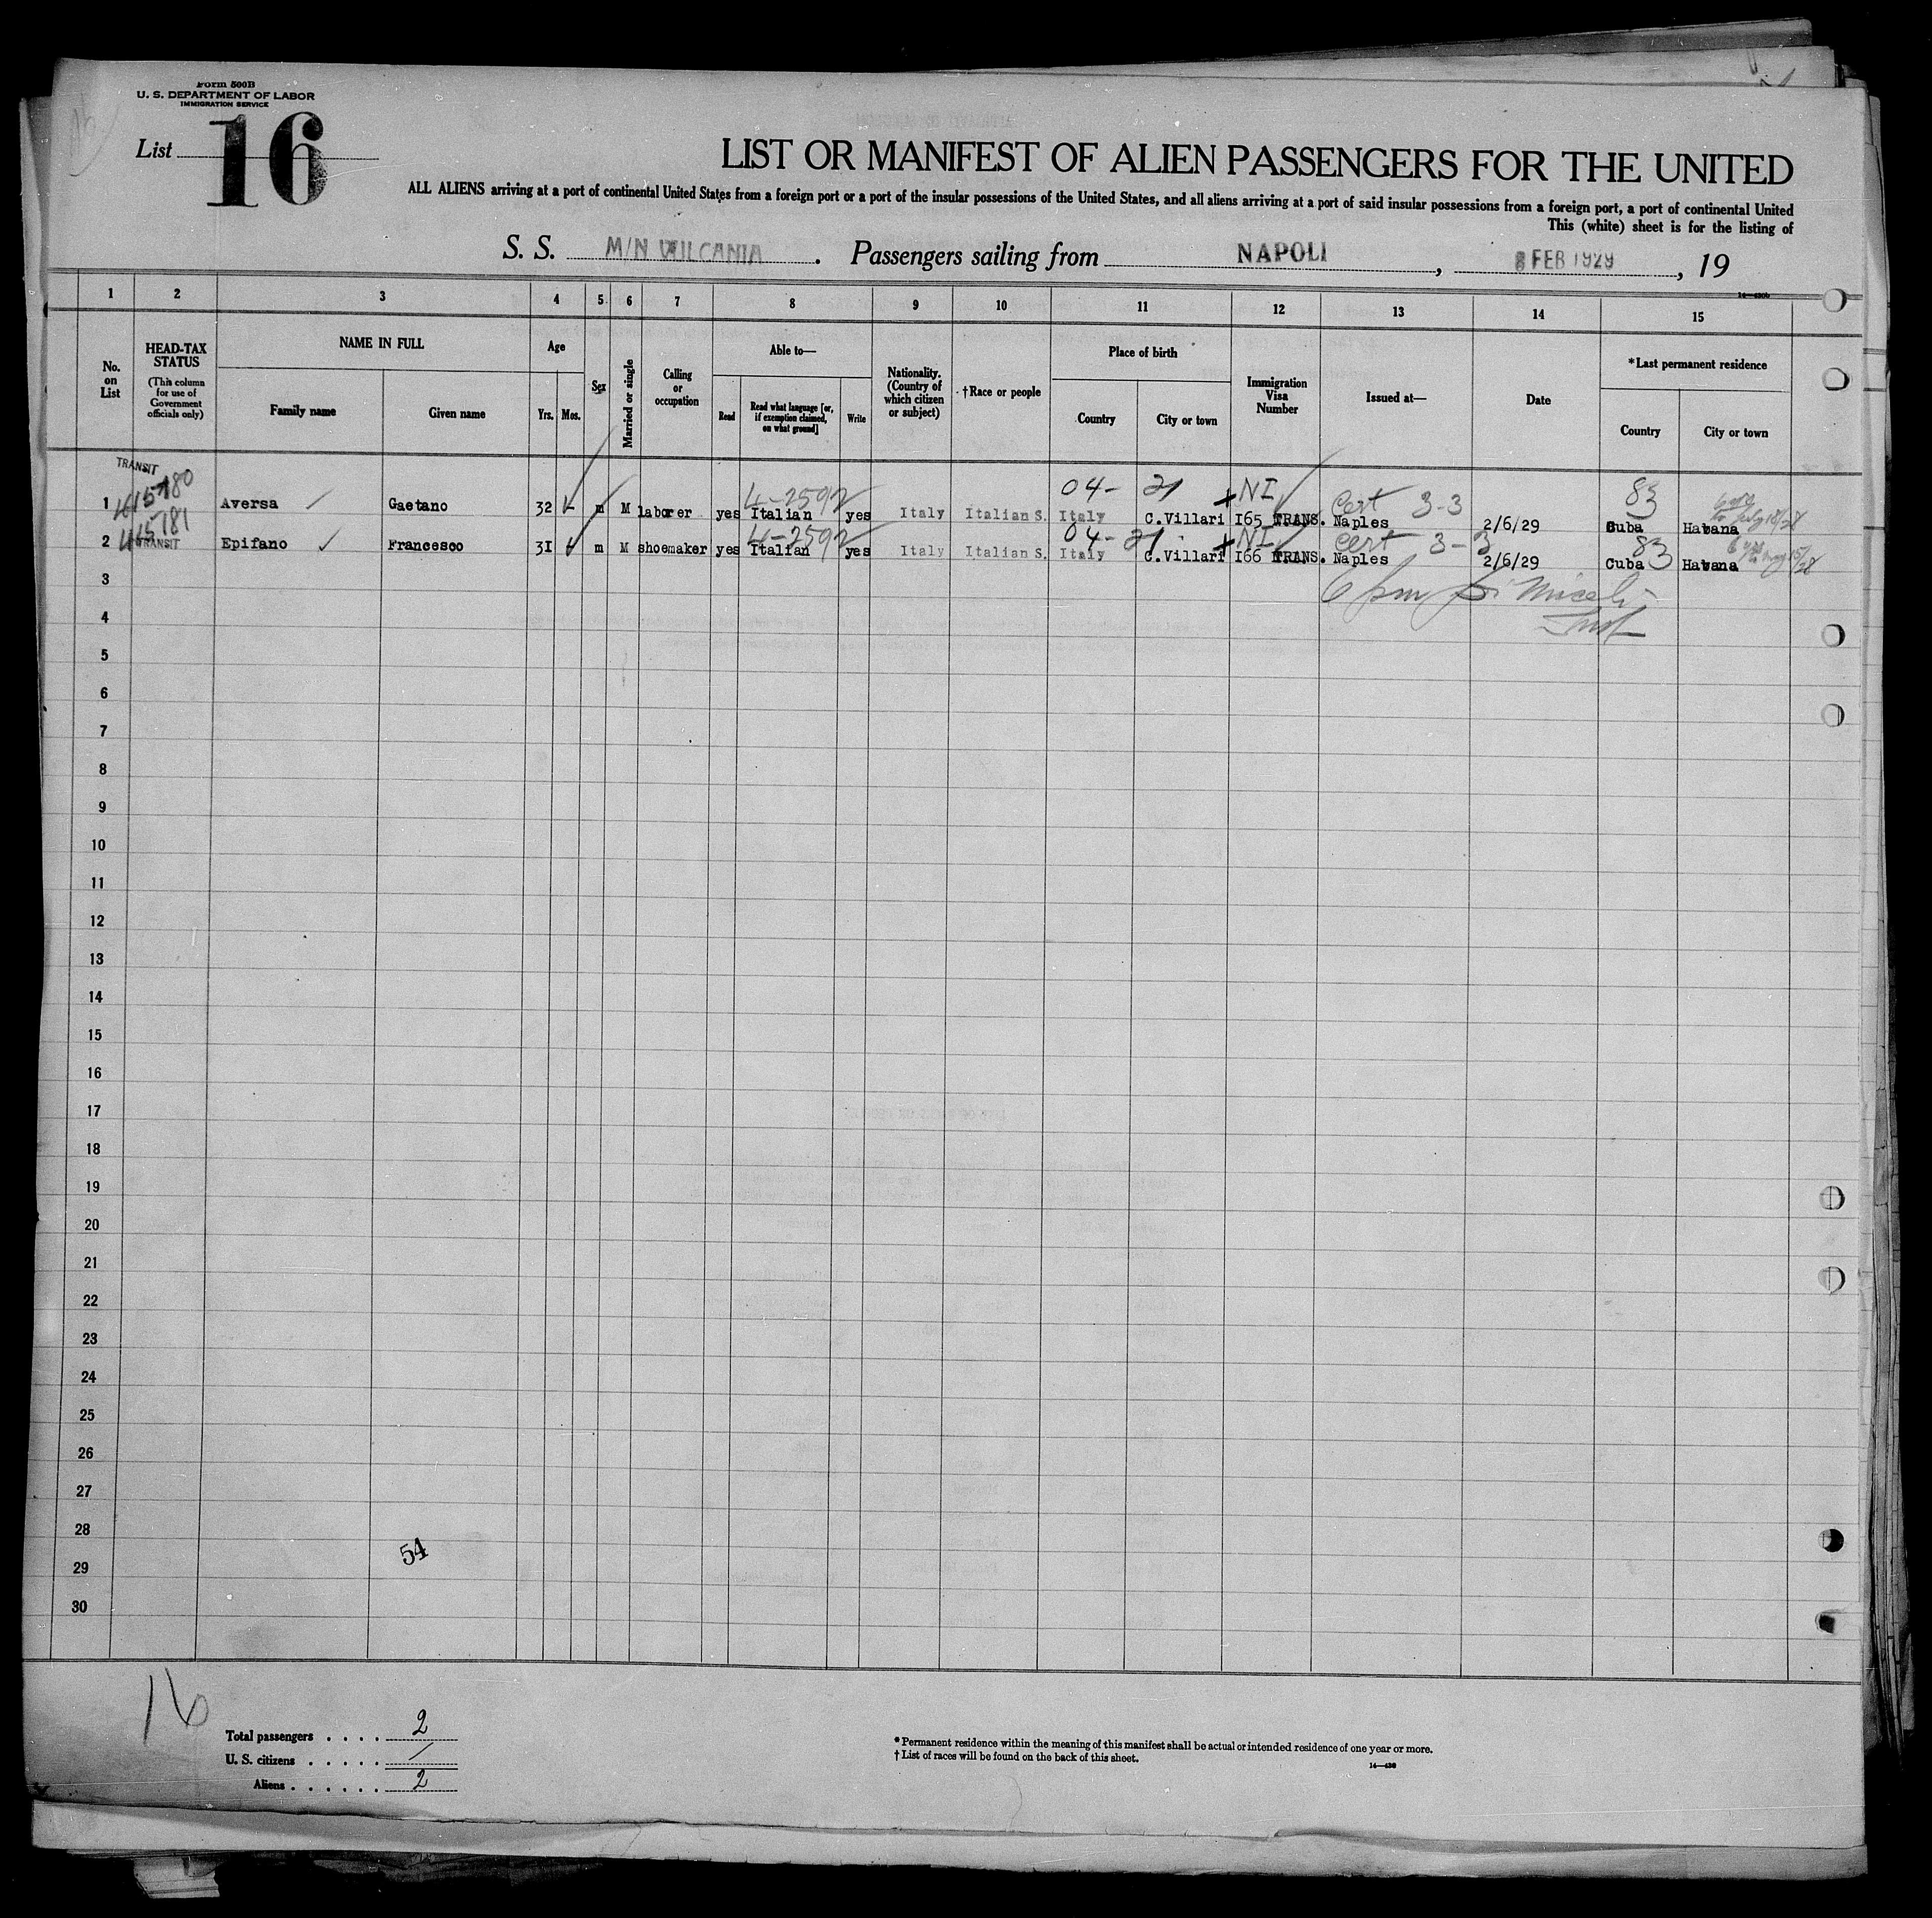 Form 500B
U. S. DEPARTMENT OF LABOR
IMMIGRATION SERVICE
List 16
LIST OR MANIFEST OF ALIEN PASSENGERS FOR THE UNITED
ALL ALIENS arriving at a port of continental United States from a foreign port or a port of the insular possessions of the United States, and all aliens arriving at a port of said insular possessions from a foreign port, a port of continental United
This (white) sheet is for the listing of
S. S. M/N VULCANIA. Passengers sailing from NAPOLI, 8 FEB 1929, 19
14—430b
1 2 3 4 5 6 7 8 9 10 11 12 13 14 15
No. on List
HEAD-TAX STATUS (This column for use of Government officials only)
NAME IN FULL
Family name
Given name
Age
Yrs.
Mos.
Sex
Married or single
Calling or occupation
Able to—
Read
Read what language [or, if exemption claimed, on what ground]
Write
Nationality. (Country of which citizen or subject)
†Race or people
Place of birth
Country
City or town
Immigration Visa Number
Issued at—
Date
*Last permanent residence
Country
City or town
TRANSIT
415180 4-2592 04- 21 NI Cert 3-3 83
1 Aversa Gaetano 32 m M laborer yes Italian yes Italy Italian S. Italy C.Villari I65 TRANS. Naples 2/6/29 Cuba Havana
415181 4-2592 04- 21 NI Cert 3-3 83
2 TRANSIT Epifano Francesco 3I m M shoemaker yes Italian yes Italy Italian S. Italy C.Villari I66 TRANS. Naples 2/6/29 Cuba Havana
3
4
5
6
7
8
9
10
11
12
13
14
15
16
17
18
19
20
21
22
23
24
25
26
27
28
54
29
30
16
Total passengers . . . . 2
U. S. citizens . . . . . /
Aliens . . . . . . 2
* Permanent residence within the meaning of this manifest shall be actual or intended residence of one year or more.
† List of races will be found on the back of this sheet.
14—430